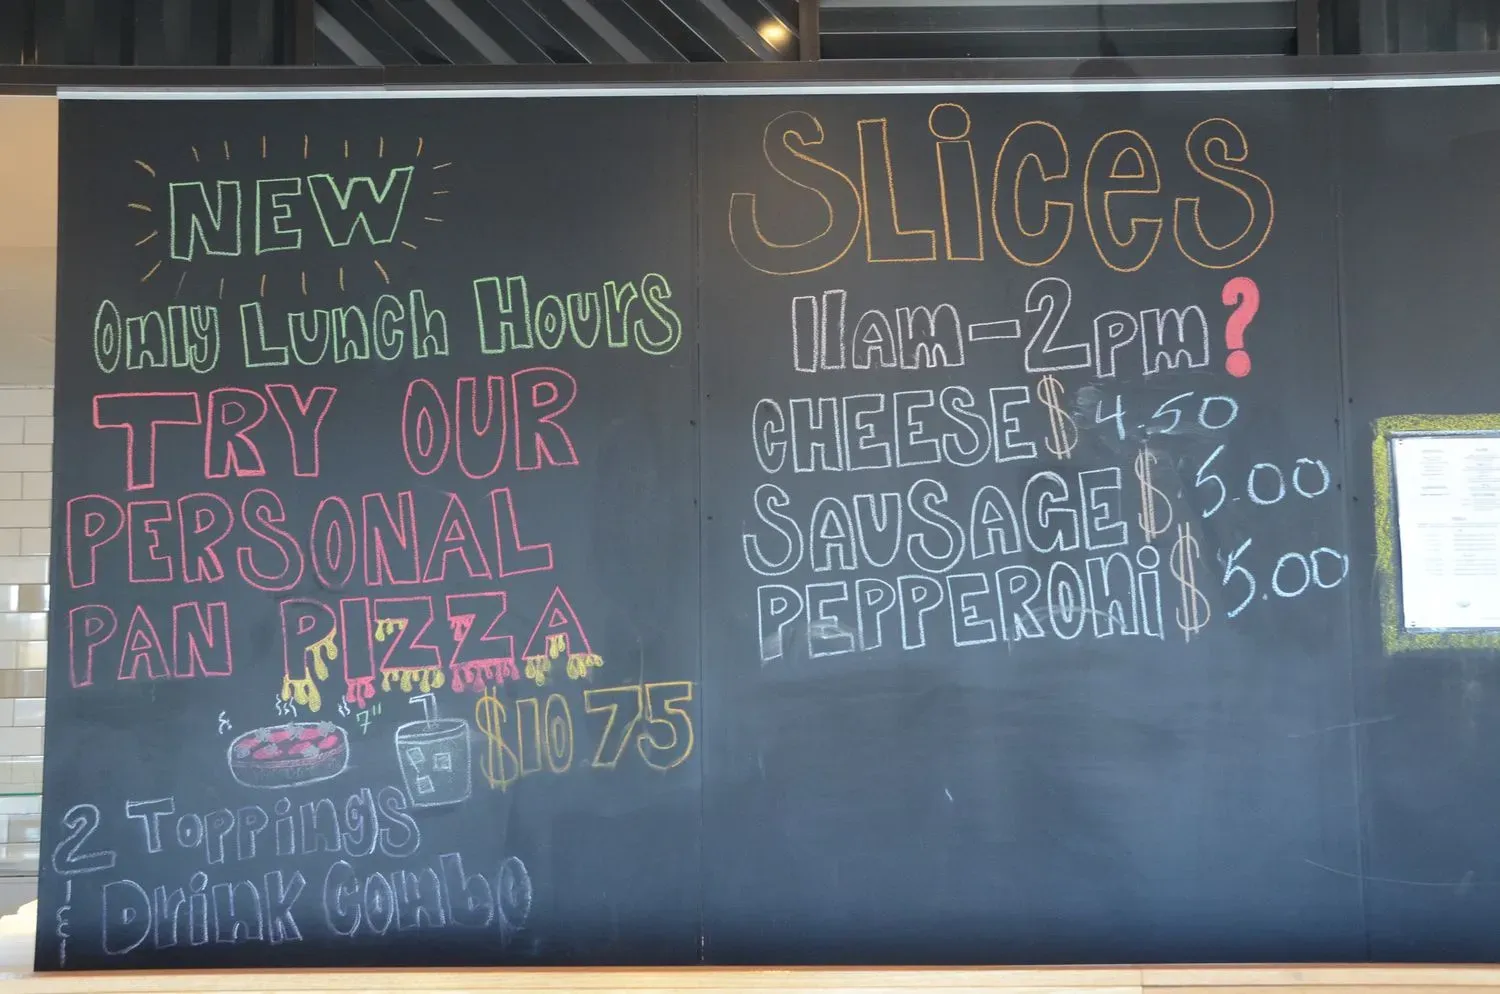 NEW
Only Lunch Hours
TRY OUR
PERSONAL
PAN PIZZA
7"
$10.75
2 Toppings
& Drink Combo
SLiCeS
11am-2pm?
CHEESE $ 4.50
SAUSAGE $ 5.00
PEPPERONi $ 5.00